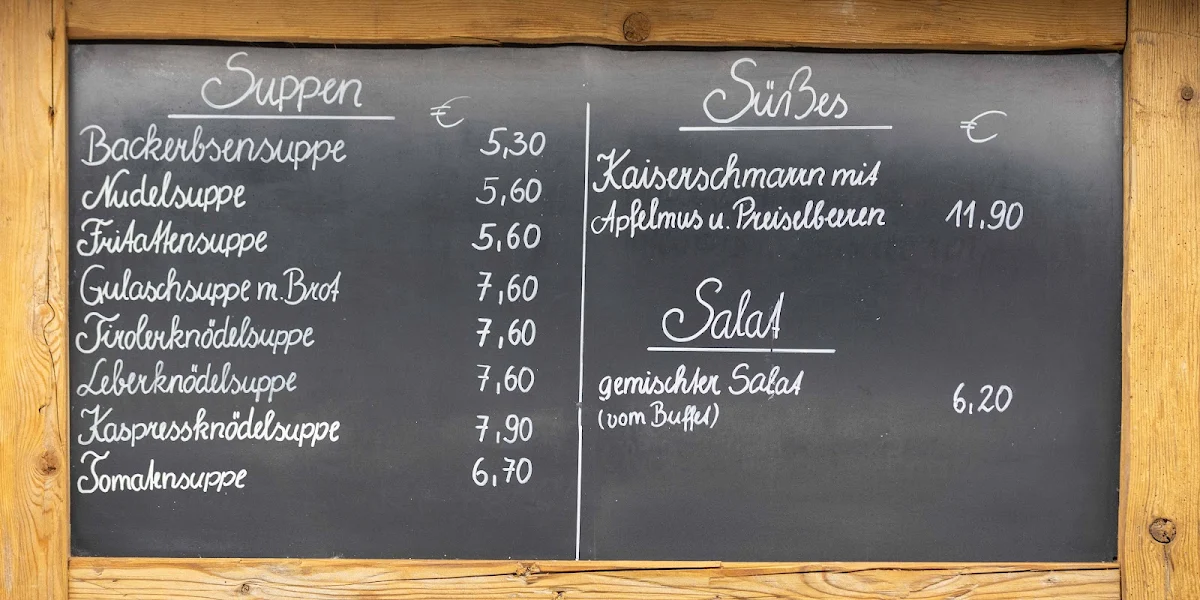 Suppen
€
Backerbsensuppe 5,30
Nudelsuppe 5,60
Fritattensuppe 5,60
Gulaschsuppe m. Brot 7,60
Tirolerknödelsuppe 7,60
Leberknödelsuppe 7,60
Kaspressknödelsuppe 7,90
Tomatensuppe 6,70
Süßes
€
Kaiserschmarrn mit
Apfelmus u. Preiselbeeren 11,90
Salat
gemischter Salat
(vom Buffet) 6,20